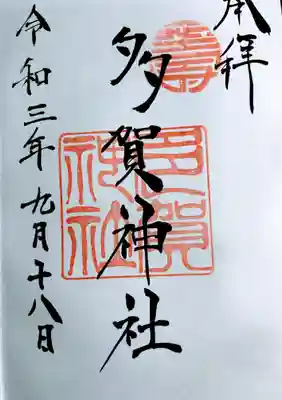 奉拝
多賀神社
令和三年九月十八日
壽
多賀神社